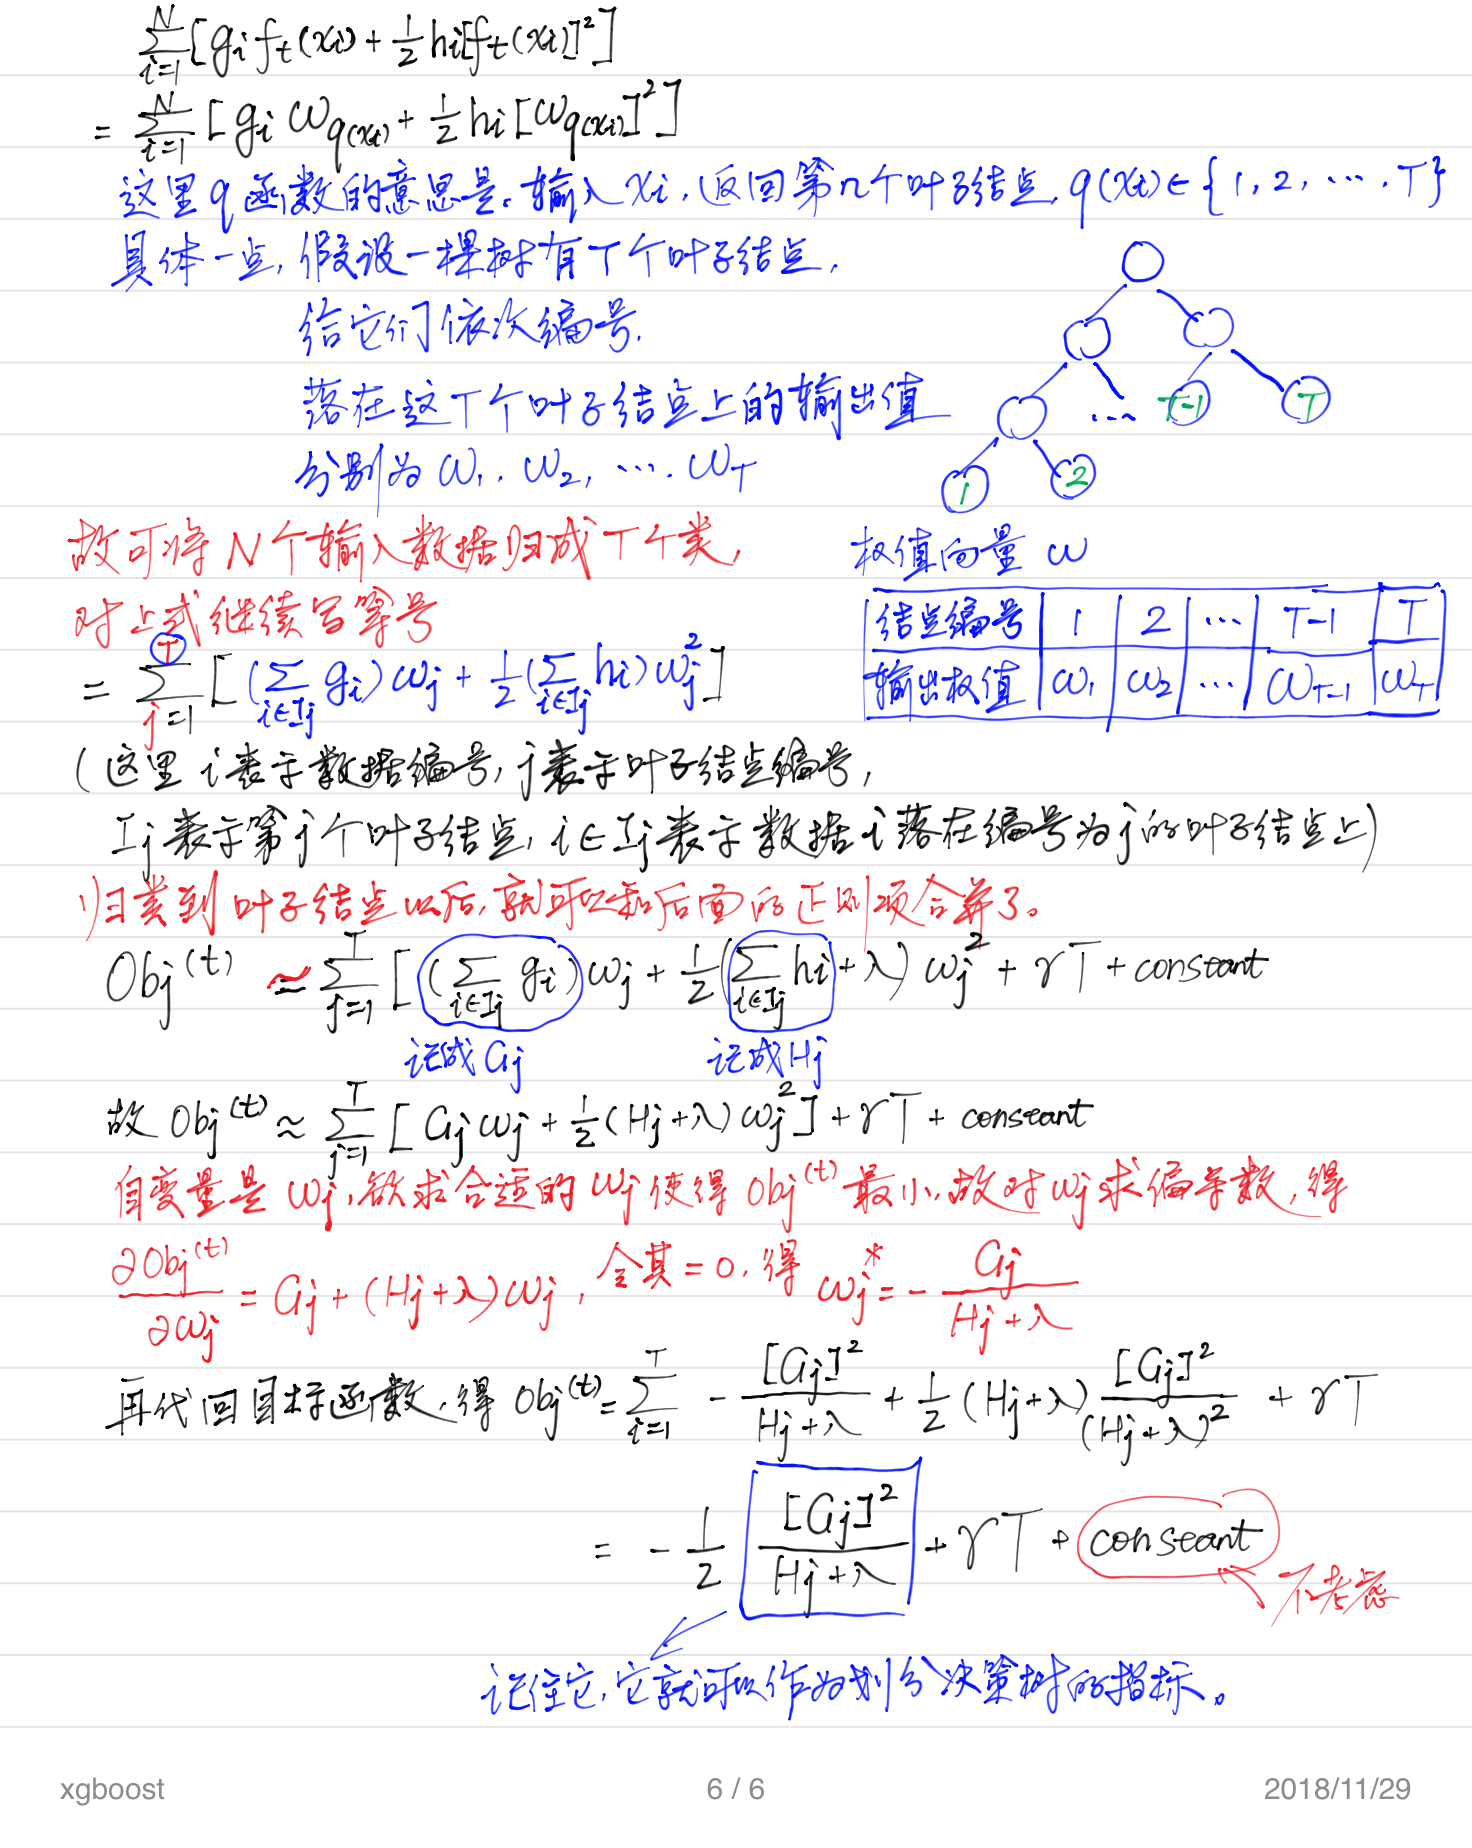 ∑_{i=1}^{N} [g_i f_t(x_i) + 1/2 h_i[f_t(x_i)]²]
= ∑_{i=1}^{N} [g_i ω_{q(x_i)} + 1/2 h_i [ω_{q(x_i)}]²]
这里 q 函数的意思是。输入 x_i, 返回第几个叶子结点, q(x_i) ∈ {1, 2, …, T}
具体一点, 假设一棵树有 T 个叶子结点,
给它们依次编号.
落在这 T 个叶子结点上的输出值
分别为 ω_1, ω_2, …, ω_T
… T-1 T
1 2
故可将 N 个输入数据归成 T 个类,
对上式继续写等号
权值向量 ω
结点编号 1 2 … T-1 T
输出权值 ω_1 ω_2 … ω_{T-1} ω_T
= ∑_{j=1}^{T} [(∑_{i∈I_j} g_i) ω_j + 1/2 (∑_{i∈I_j} h_i) ω_j²]
(这里 i 表示数据编号, j 表示叶子结点编号,
I_j 表示第 j 个叶子结点, i∈I_j 表示数据 i 落在编号为 j 的叶子结点上)
归类到叶子结点以后, 就可以和后面的正则项合并了。
Obj^{(t)} ≃ ∑_{j=1}^{T} [(∑_{i∈I_j} g_i) ω_j + 1/2 (∑_{i∈I_j} h_i + λ) ω_j² + γT + constant
记成 G_j 记成 H_j
故 Obj^{(t)} ≈ ∑_{j=1}^{T} [G_j ω_j + 1/2 (H_j + λ) ω_j²] + γT + constant
自变量是 ω_j, 欲求合适的 ω_j 使得 Obj^{(t)} 最小, 故对 ω_j 求偏导数, 得
∂Obj^{(t)}/∂ω_j = G_j + (H_j + λ) ω_j, 令其 = 0, 得 ω_j^* = - G_j/(H_j + λ)
再代回目标函数, 得 Obj^{(t)} = ∑_{i=1}^{T} - [G_j]²/(H_j + λ) + 1/2 (H_j + λ) [G_j]²/(H_j + λ)² + γT
= - 1/2 [G_j]²/(H_j + λ) + γT + constant
不考虑
记住它, 它就可以作为划分决策树的指标。
xgboost 6 / 6 2018/11/29